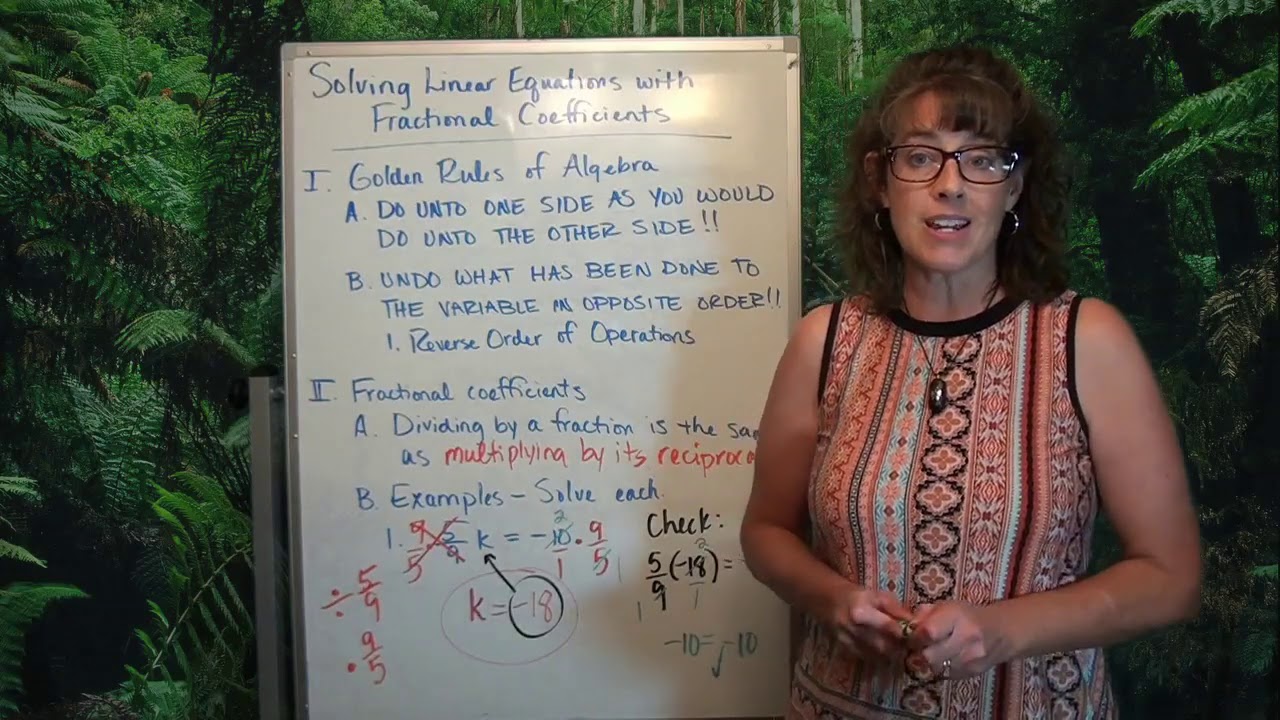 Solving Linear Equations with
Fractional Coefficients
I. Golden Rules of Algebra
A. DO UNTO ONE SIDE AS YOU WOULD
DO UNTO THE OTHER SIDE!!
B. UNDO WHAT HAS BEEN DONE TO
THE VARIABLE IN OPPOSITE ORDER!!
1. Reverse Order of Operations
II. Fractional coefficients
A. Dividing by a fraction is the
as multiplying by its
B. Examples – Solve each.
1. 9/5 · 5/9 k = -10/1 · 9/5
2
÷ 5/9
· 9/5
k = -18
Check:
5/9 (-18/1) =
2
1
1
-10 = -10 ✓